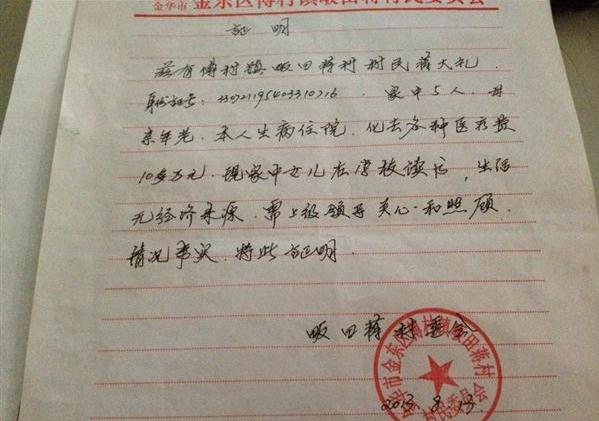 金华市 金东区傅村镇畈田蒋村村民委员会
证明
兹有傅村镇畈田蒋村村民蒋大礼.
身份证号: 家中5人.
亲年老.本人生病住院.化去各种医疗费
10多万元.现家中女儿在学校读书,生活
无经济来源.需上级领导关心和照顾.
情况事实.特此证明.
畈田蒋村委会
金华市金东区傅村镇畈田蒋村村民委员会
2013.8.13.